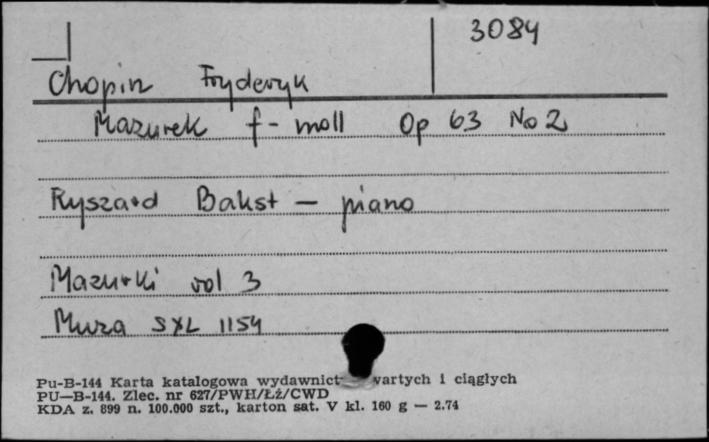 3084
Chopin Fryderyk
Mazurek f-moll Op 63 No 2
Ryszard Bakst — piano
Mazurki vol 3
Muza SXL 1154
Pu-B-144 Karta katalogowa wydawnict wartych i ciągłych
PU—B-144. Zlec. nr 627/PWH/Łź/CWD
KDA z. 899 n. 100.000 szt., karton sat. V kl. 160 g — 2.74